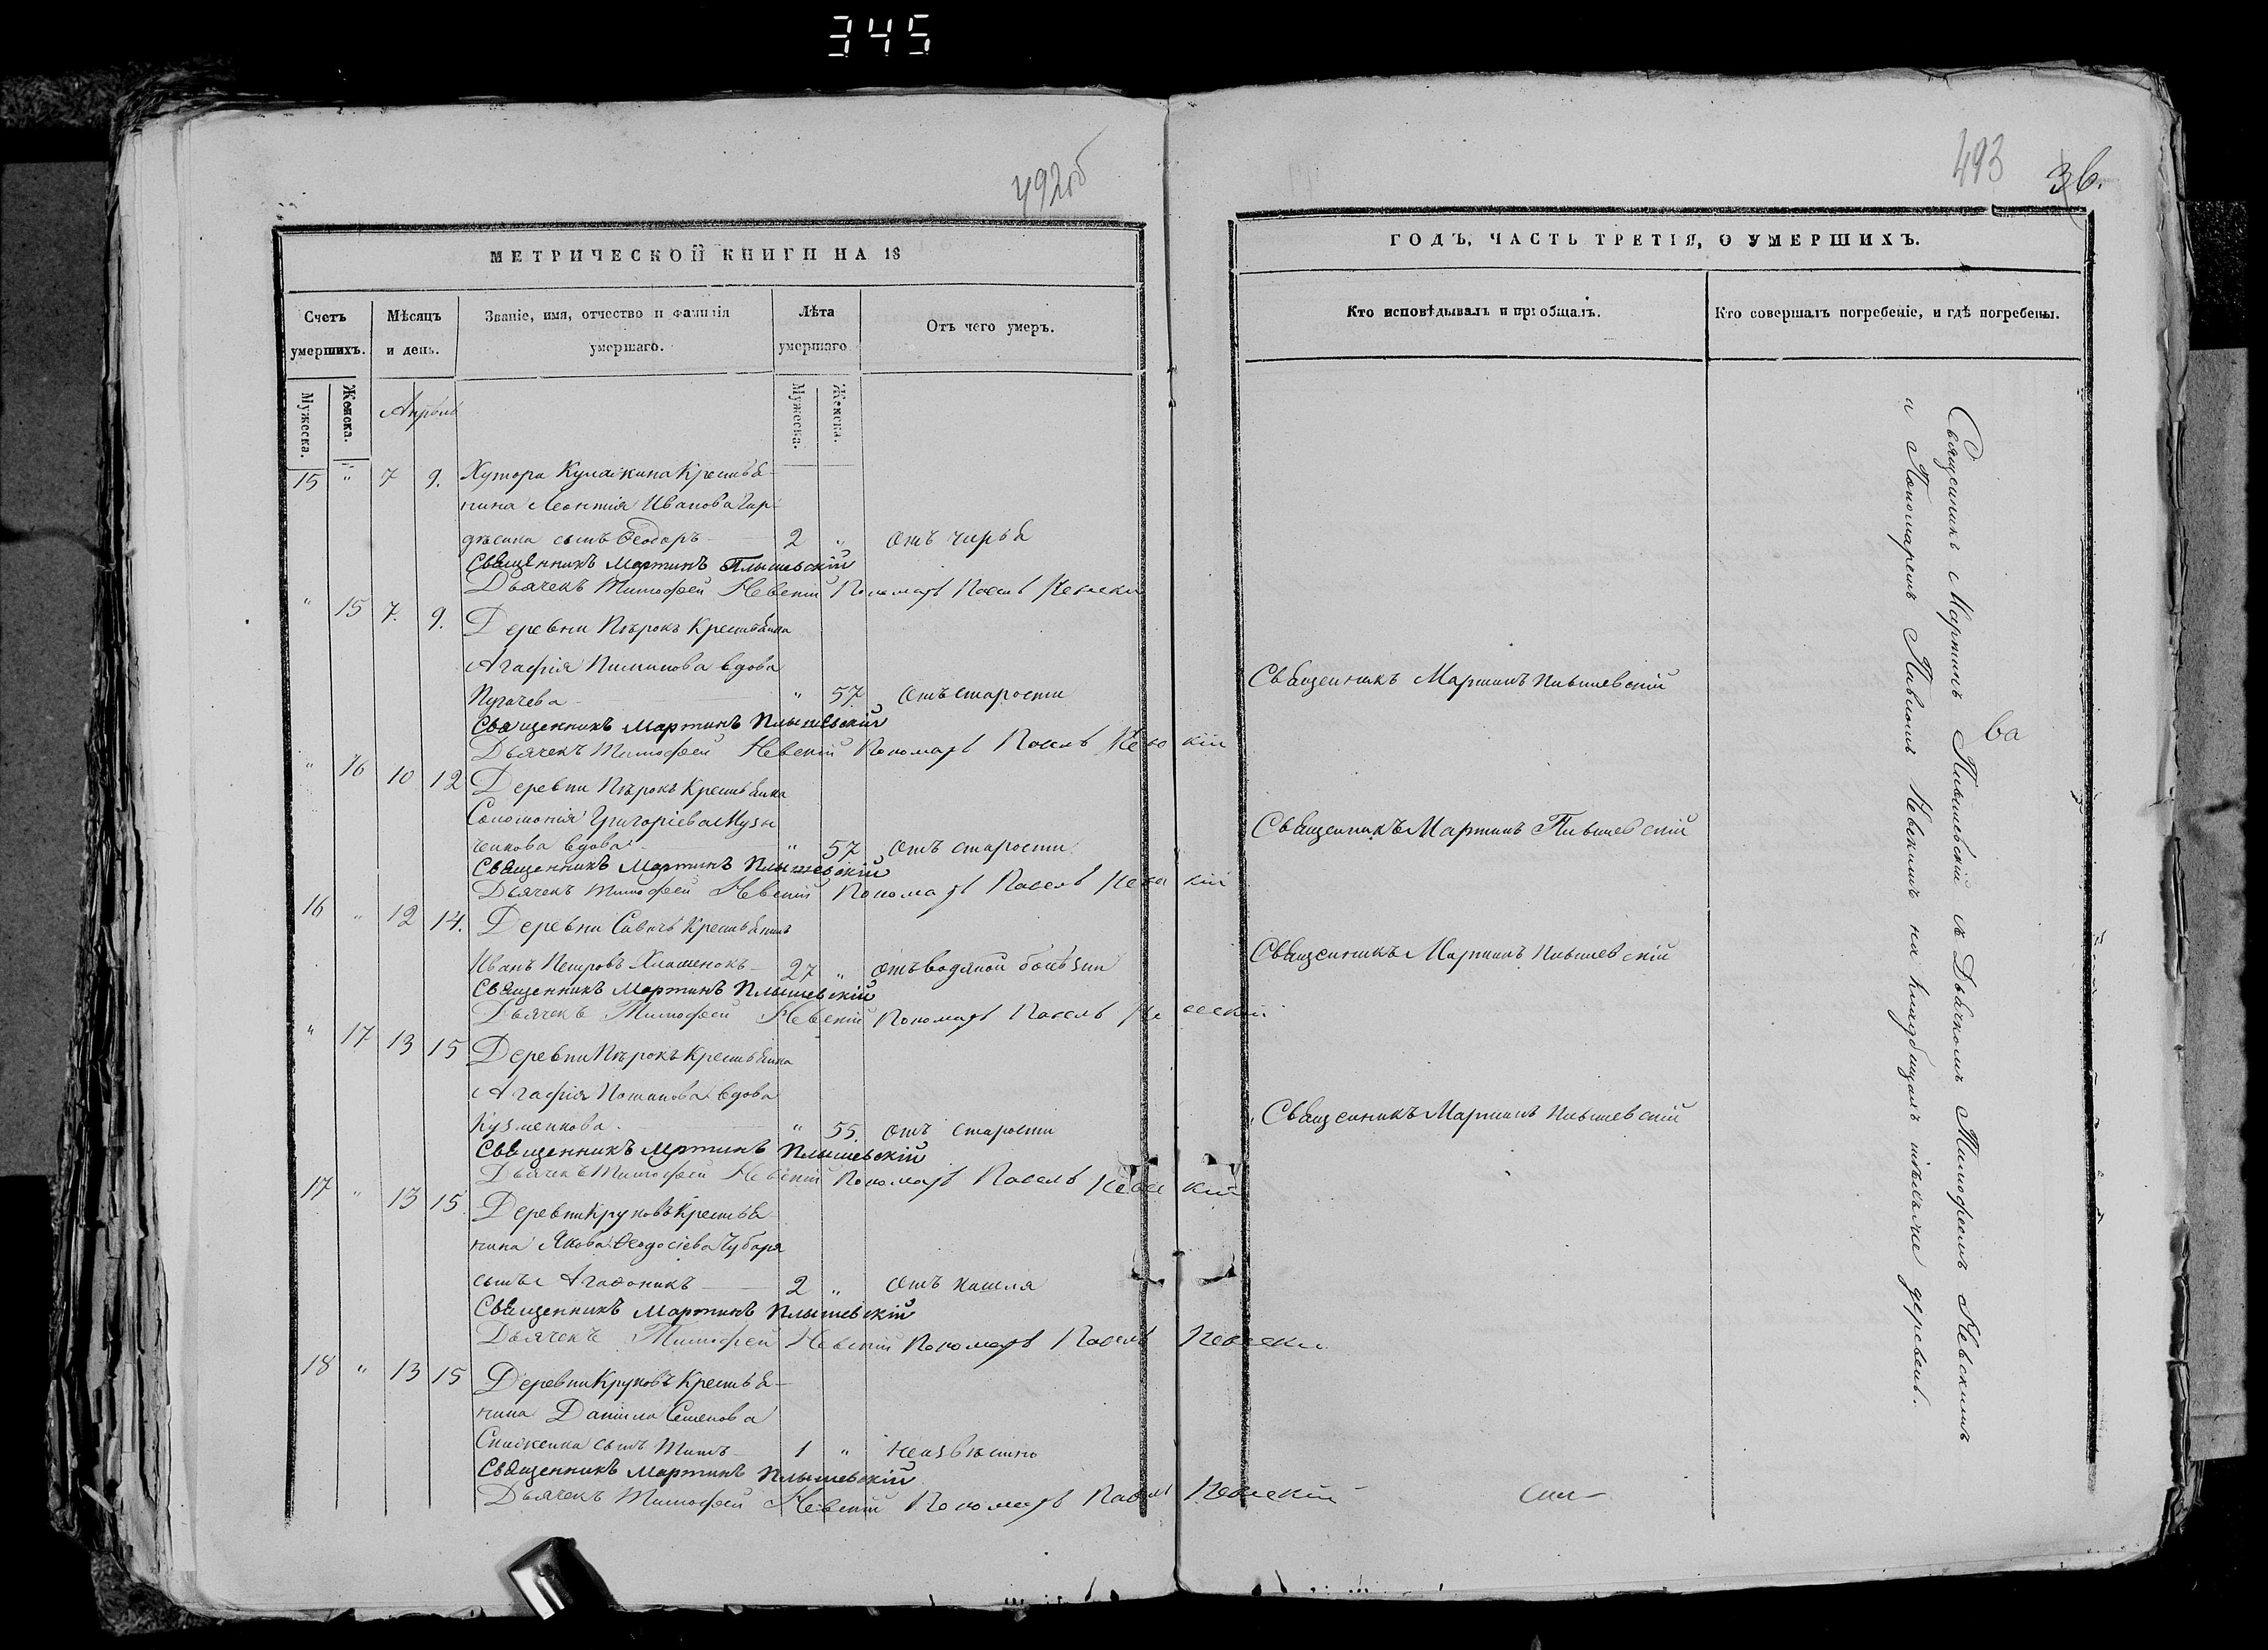 345
492об
МЕТРИЧЕСКОЙ КНИГИ НА 18
Счетъ умершихъ.
Мѣсяцъ и день.
Званіе, имя, отчество и фамилія умершаго.
Лѣта умершаго
Отъ чего умеръ.
Мужеска.
Женска.
Апрѣль
Мужеска.
Женска.
15 " 7 9. Хутора Кулажина Крестья-
нина Леонтія Иванова
сынъ Ѳеодоръ 2 " отъ чирья
Священникъ Мартинъ Плышевскій
Дьячекъ Тимофей Невскій Пономарь Павелъ Невскій
" 15 7. 9. Деревни Пѣрокъ Крестьянка
Агафія Пиминова вдова
Пугачева " 57 отъ старости
Священникъ Мартинъ Плышевскій
Дьячекъ Тимофей Невскій Пономарь Павелъ Невскій
" 16 10 12 Деревни Пѣрокъ Крестьянка
Соломонія Григоріева Музы
ченкова вдова " 57 отъ старости
Священникъ Мартинъ Плышевскій
Дьячекъ Тимофей Невскій Пономарь Павелъ Невскій
16 " 12 14. Деревни Савичъ Крестьянинъ
Иванъ Петровъ Хламенокъ 27 " отъ водяной болѣзни
Священникъ Мартинъ Плышевскій
Дьячекъ Тимофей Невскій Пономарь Павелъ Невскій
" 17 13 15 Деревни Пѣрокъ Крестьянка
Агафія Потапова вдова
Кузменкова. " 55. отъ старости
Священникъ Мртинъ Плышевскій
Дьячекъ Тимофей Невскій Пономарь Павелъ Невскій
17 " 13 15. Деревни Круковъ Крестья-
нина Якова Ѳеодосіева Чубаря
сынъ Агаѳоникъ 2 " отъ кашля
Священникъ Мартинъ Плышевскій
Дьячекъ Тимофей Невскій Пономарь Павелъ Невскій
18 " 13 15 Деревни Круковъ Крестья-
нина Даніила Семенова
сынъ Титъ 1 " неизвѣстно
Священникъ Мартинъ Плышевскій
Дьячекъ Тимофей Невскій Пономарь Павелъ Невскій
493
36.
ГОДЪ, ЧАСТЬ ТРЕТІЯ, О УМЕРШИХЪ.
Кто исповѣдывалъ и пріобщалъ.
Кто совершалъ погребеніе, и гдѣ погребены.
Священникъ Мартинъ Плышевскій
Священникъ Мартинъ Плышевскій
Священникъ Мартинъ Плышевскій
Священникъ Мартинъ Плышевскій
Священникъ Мартинъ Плышевскій съ Дьячкомъ Тимофеемъ Невскимъ
и Пономаремъ Павломъ Невскимъ на кладбищахъ деревень.